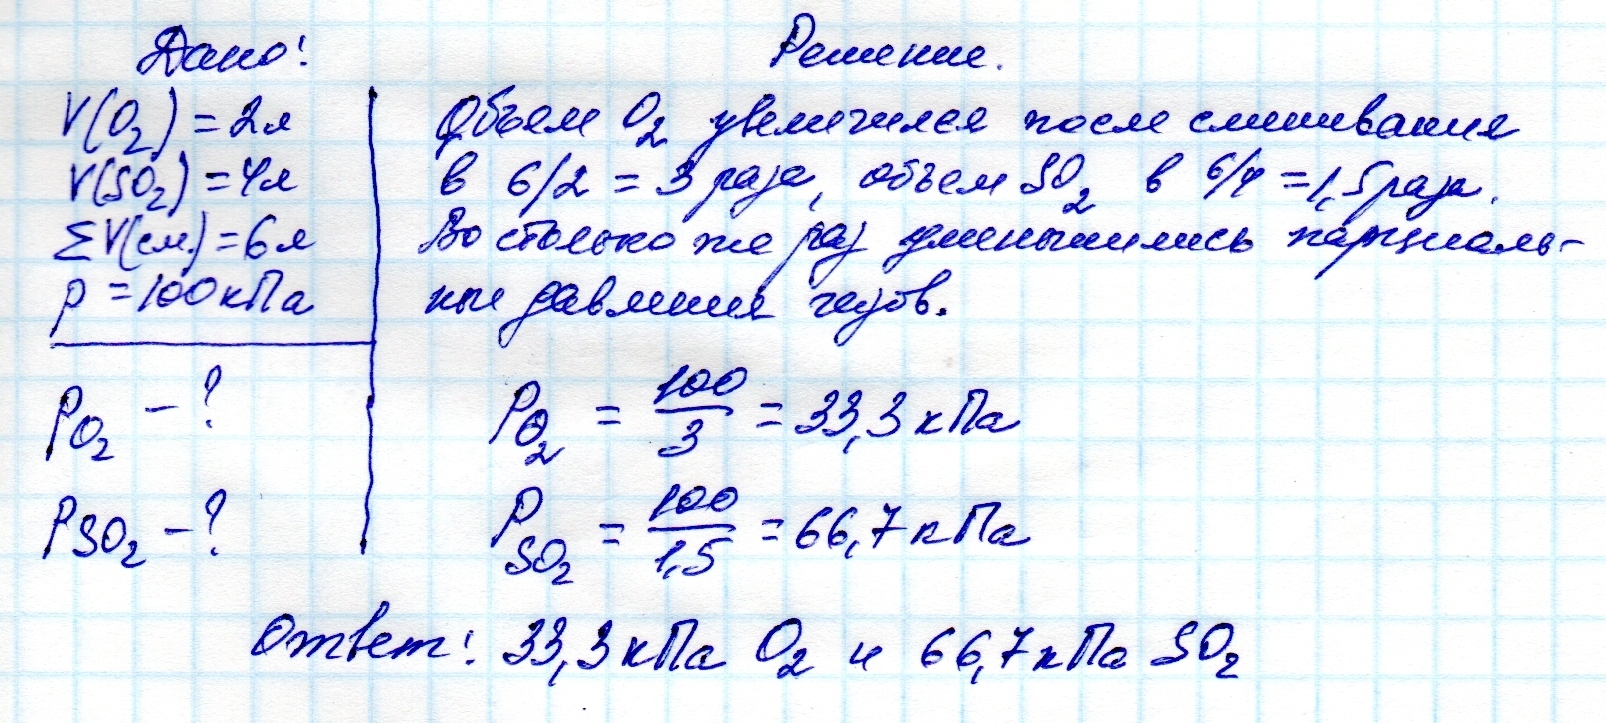 Дано:
V(O₂) = 2л
V(SO₂) = 4л
ΣV(см.) = 6л
p = 100 кПа
P O₂ – ?
P SO₂ – ?
Решение.
Объем O₂ увеличился после смешивания
в 6/2 = 3 раза, объем SO₂ в 6/4 = 1,5 раза.
Во столько же раз уменьшились парциаль-
ные давления газов.
P O₂ = 100/3 = 33,3 кПа
P SO₂ = 100/1,5 = 66,7 кПа
Ответ: 33,3 кПа O₂ и 66,7 кПа SO₂